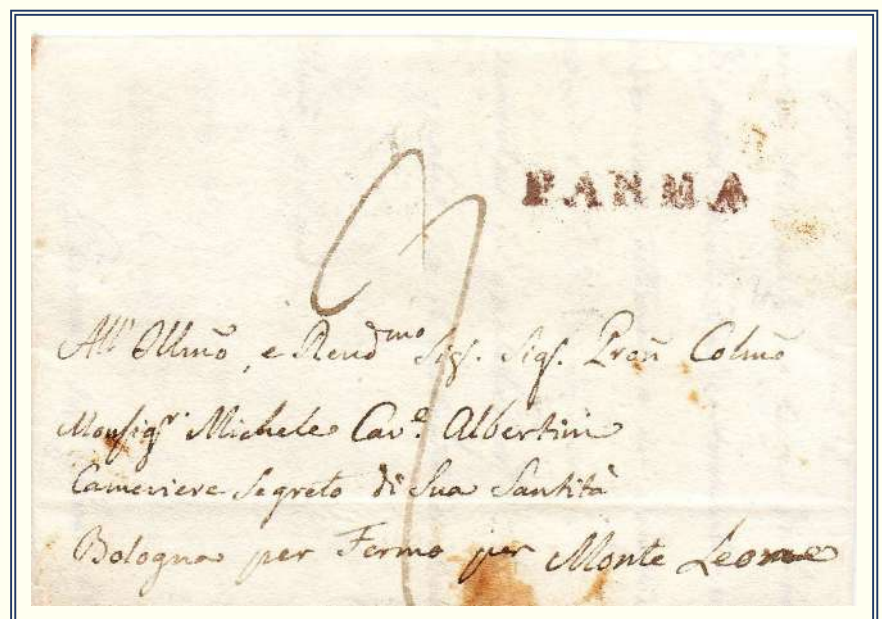 PARMA
All' Illmo, e Revdmo Sigr. Sigr. Pron Colmo
Monsigr. Michele Cave. Albertini
Cameriere Segreto di Sua Santità
Bologna per Fermo per Monte Leone